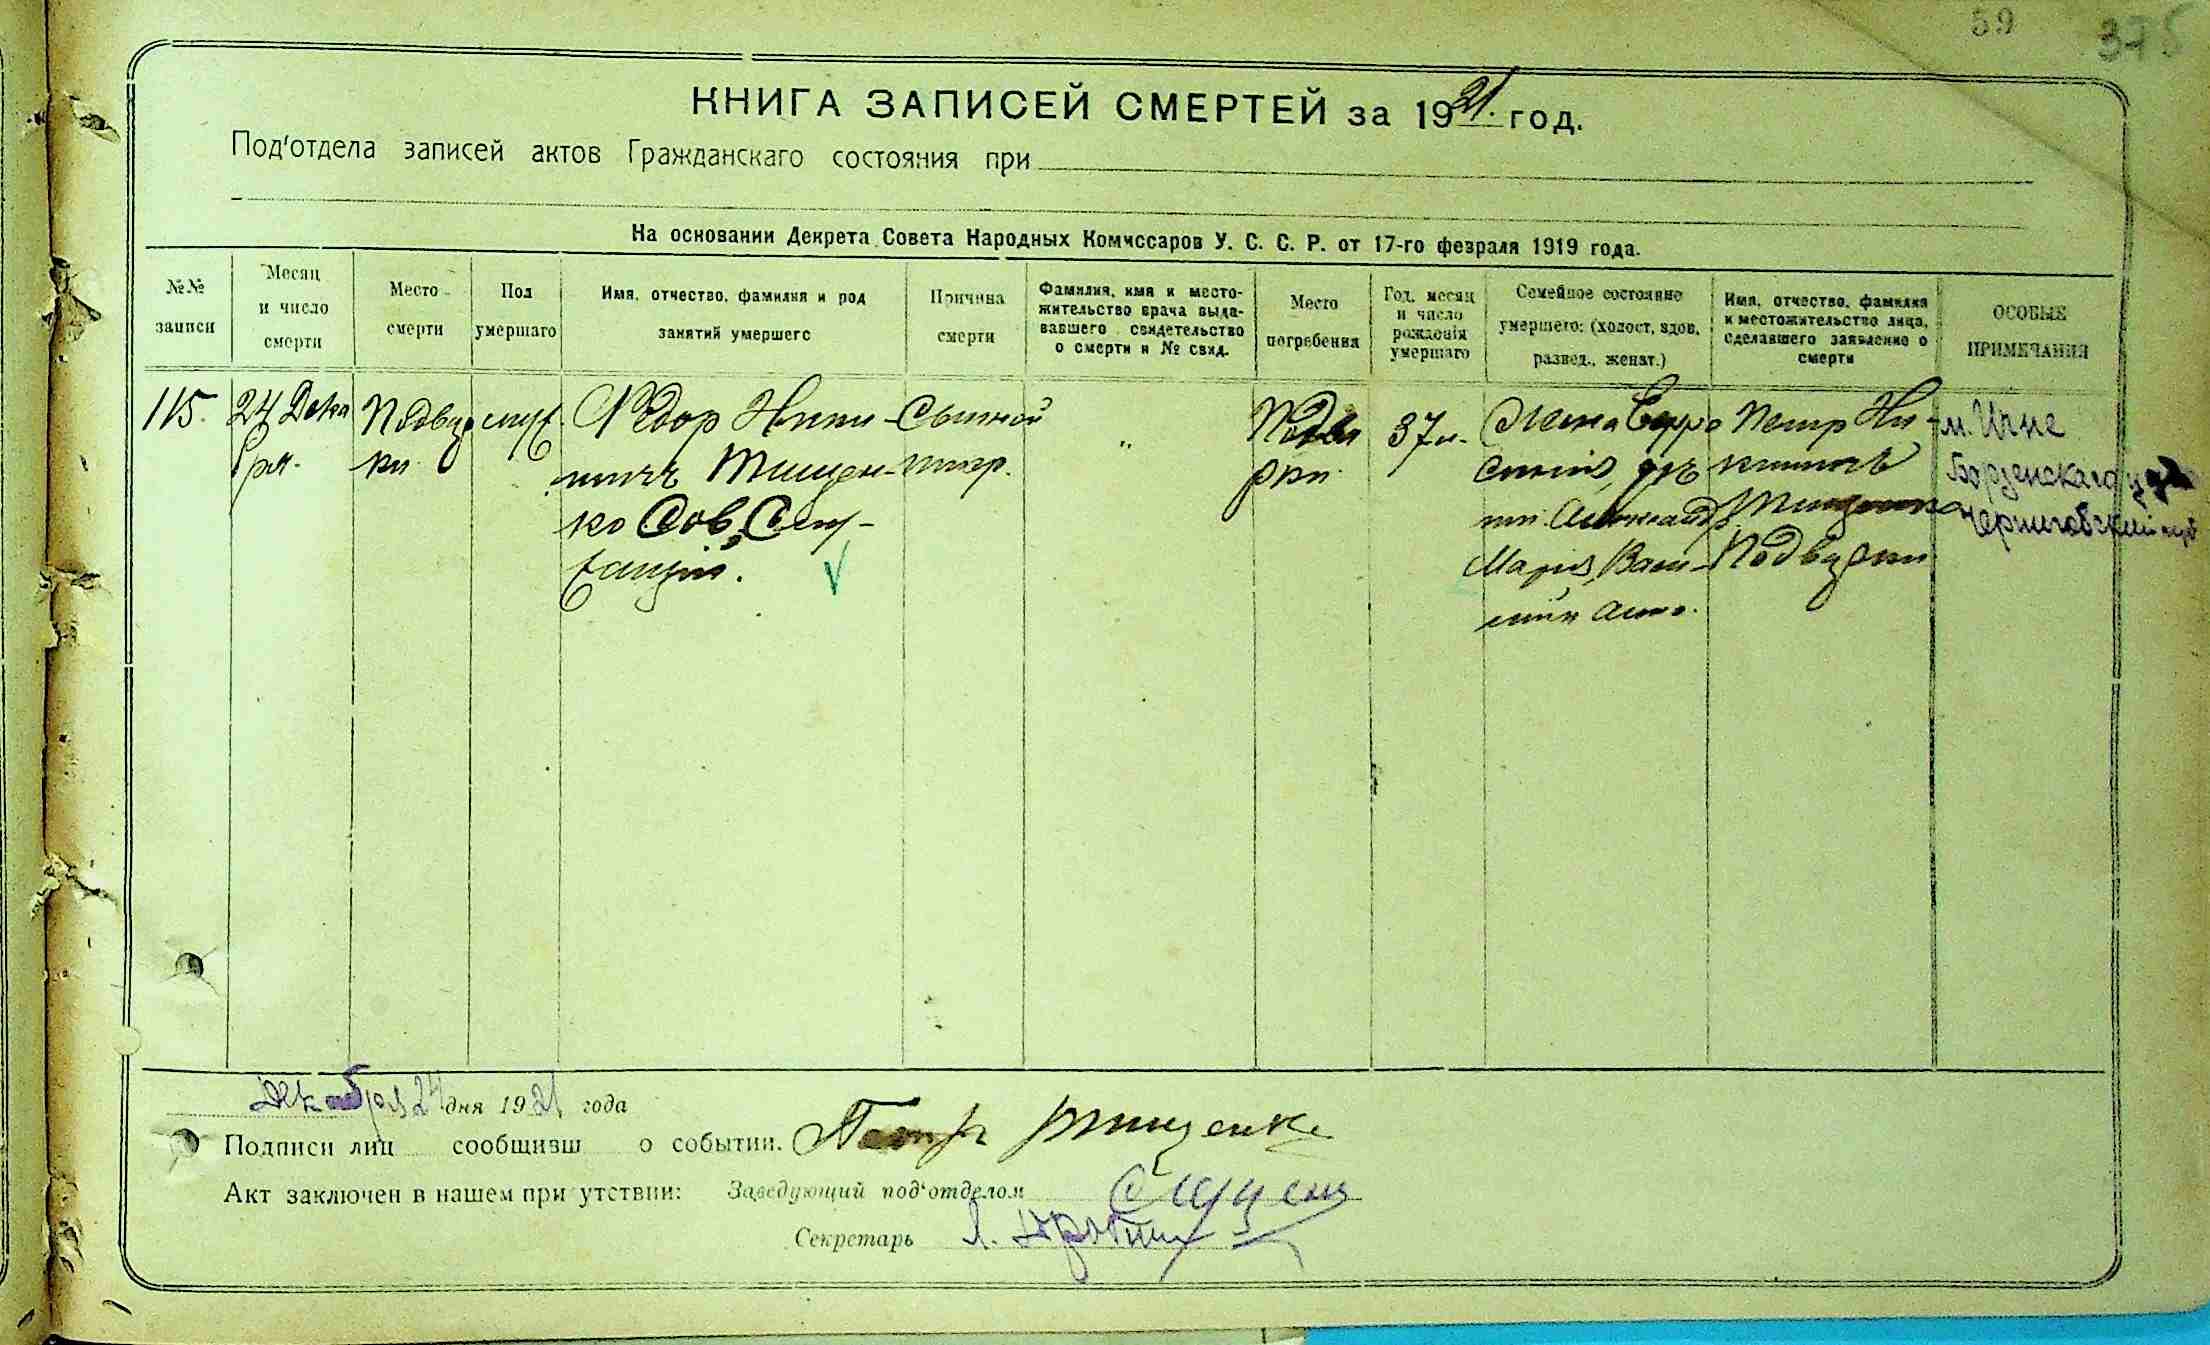 59
375
КНИГА ЗАПИСЕЙ СМЕРТЕЙ за 1921. год.
Под'отдела записей актов Гражданскаго состояния при
На основании Декрета Совета Народных Комиссаров У. С. С. Р. от 17-го февраля 1919 года.
№№
записи
Месяц
и число
смерти
Место
смерти
Пол
умершаго
Имя, отчество, фамилия и род
занятий умершего
Причина
смерти
Фамилия, имя и место-
жительство врача выда-
вавшего свидетельство
о смерти и № свид.
Место
погребения
Год, месяц
и число
рождения
умершаго
Семейное состояние
умершего: (холост, вдов,
развед., женат.)
Имя, отчество, фамилия
и местожительство лица,
сделавшего заявление о
смерти
ОСОБЫЕ
ПРИМЕЧАНИЯ
115.
24 Дека
бря.
муж.
Федор Ники-
тичъ Тищен-
ко Сов. Слу-
Сыпной
тиф.
"
37 л.
Елена
Мария,
Петр Ни-
китичъ
Тищенко
м. Ичне
Борзенскаго
Черниговский губ
декабря 24 дня 1921 года
Подписи лиц сообщивш о событии. Петр Тищенко
Акт заключен в нашем при утствии: Заведующий под'отделом
Секретарь